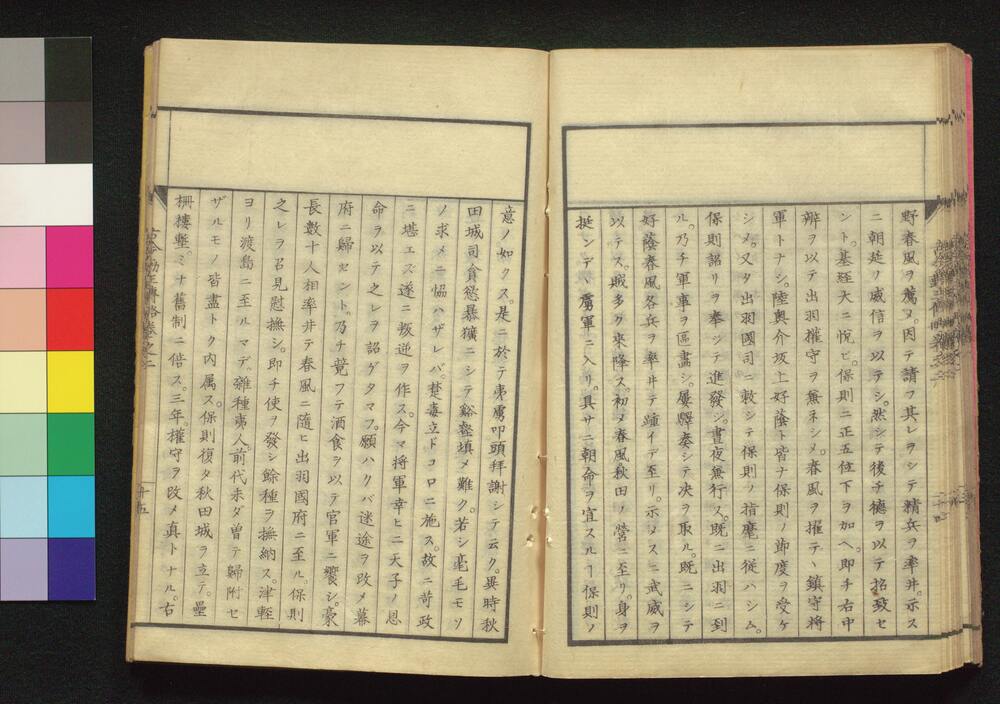 野春風ヲ薦メ。因テ請フ其レヲシテ精兵ヲ率井。示ス
ニ朝廷ノ威信ヲ以テシ。然シテ後チ德ヲ以テ招致セ
ント。基經大ニ悅ビ。保則ニ正五位下ヲ加ヘ。即チ右中
辨ヲ以テ出羽權守ヲ兼ネシメ。春風ヲ擢テヽ鎮守將
軍トナシ。陸奥介坂上好蔭ト皆ナ保則ノ節度ヲ受ケ
シメ。又タ出羽國司ニ敕シテ保則ノ指麾ニ從ハシム。
保則詔リヲ奉シテ進發シ。晝夜兼行ス。既ニ出羽ニ到
ル。乃チ軍事ヲ區畫シ。屢驛奏シテ决ヲ取ル。既ニシテ
好蔭春風各兵ヲ率井テ踵イデ至リ。示メスニ武威ヲ
以テス。賊多ク來降ス。初メ春風秋田ノ營ニ至リ。身ヲ
挺ンデヽ虜軍ニ入リ。具サニ朝命ヲ宣スルヿ保則ノ
意ノ如クス。是ニ於テ夷虜叩頭拜謝シテ云ク。異時秋
田城司貪慾暴獷ニシテ谿壑塡メ難ク。若シ毫毛モソ
ノ求メニ恊ハザレバ。楚毒立ドコロニ施ス。故ニ苛政
ニ堪エズ遂ニ叛逆ヲ作ス。今マ將軍幸ヒニ天子ノ恩
命ヲ以テ之レヲ詔ゲタマフ。願ハクバ迷途ヲ改メ幕
府ニ歸セント。乃チ競フテ酒食ヲ以テ官軍ニ饗シ。豪
長數十人相率井テ春風ニ隨ヒ出羽國府ニ至ル。保則
之レヲ召見慰撫シ。即チ使ヲ發シ餘種ヲ撫納ス。津輕
ヨリ渡島ニ至ルマデ。雜種夷人。前代未ダ曾テ歸附セ
ザルモノ皆盡トク内属ス。保則復タ秋田城ヲ立テ。壘
柵樓塹。ミナ舊制ニ倍ス。三年。權守ヲ改メ真トナル。右
十五